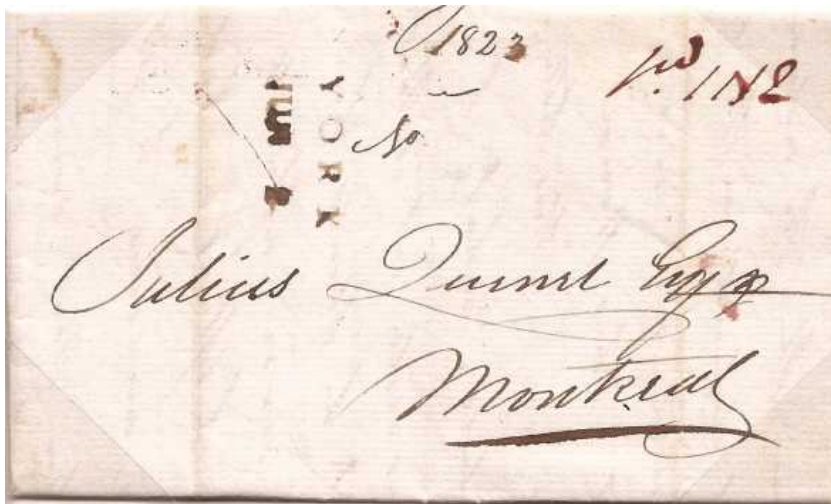 1823
pd 1N2
YORK
No
Julius Quesnel Esqr
Montreal